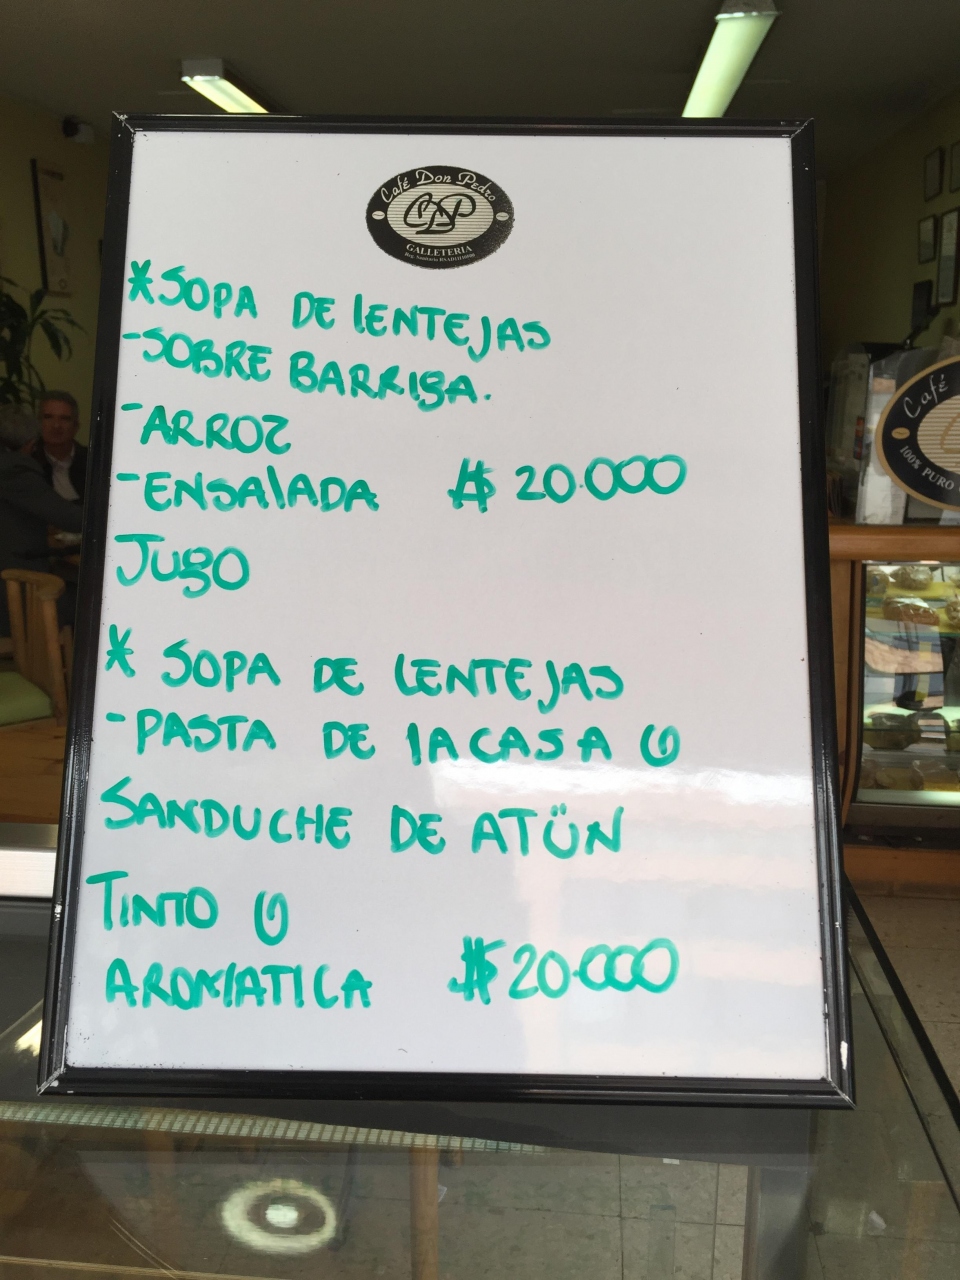 Café Don Pedro
CDP
GALLETERIA
*SOPA DE lENTEJAS
-SOBRE BARRIGA.
-ARROZ
-ENSAlADA $ 20.000
JUgO
* SOPA DE LENTEJAS
-PASTA DE lA CASA Ó
SANDUCHE DE ATÜN
TINTO Ó
AROMATICA $ 20.000
Café
100% PURO